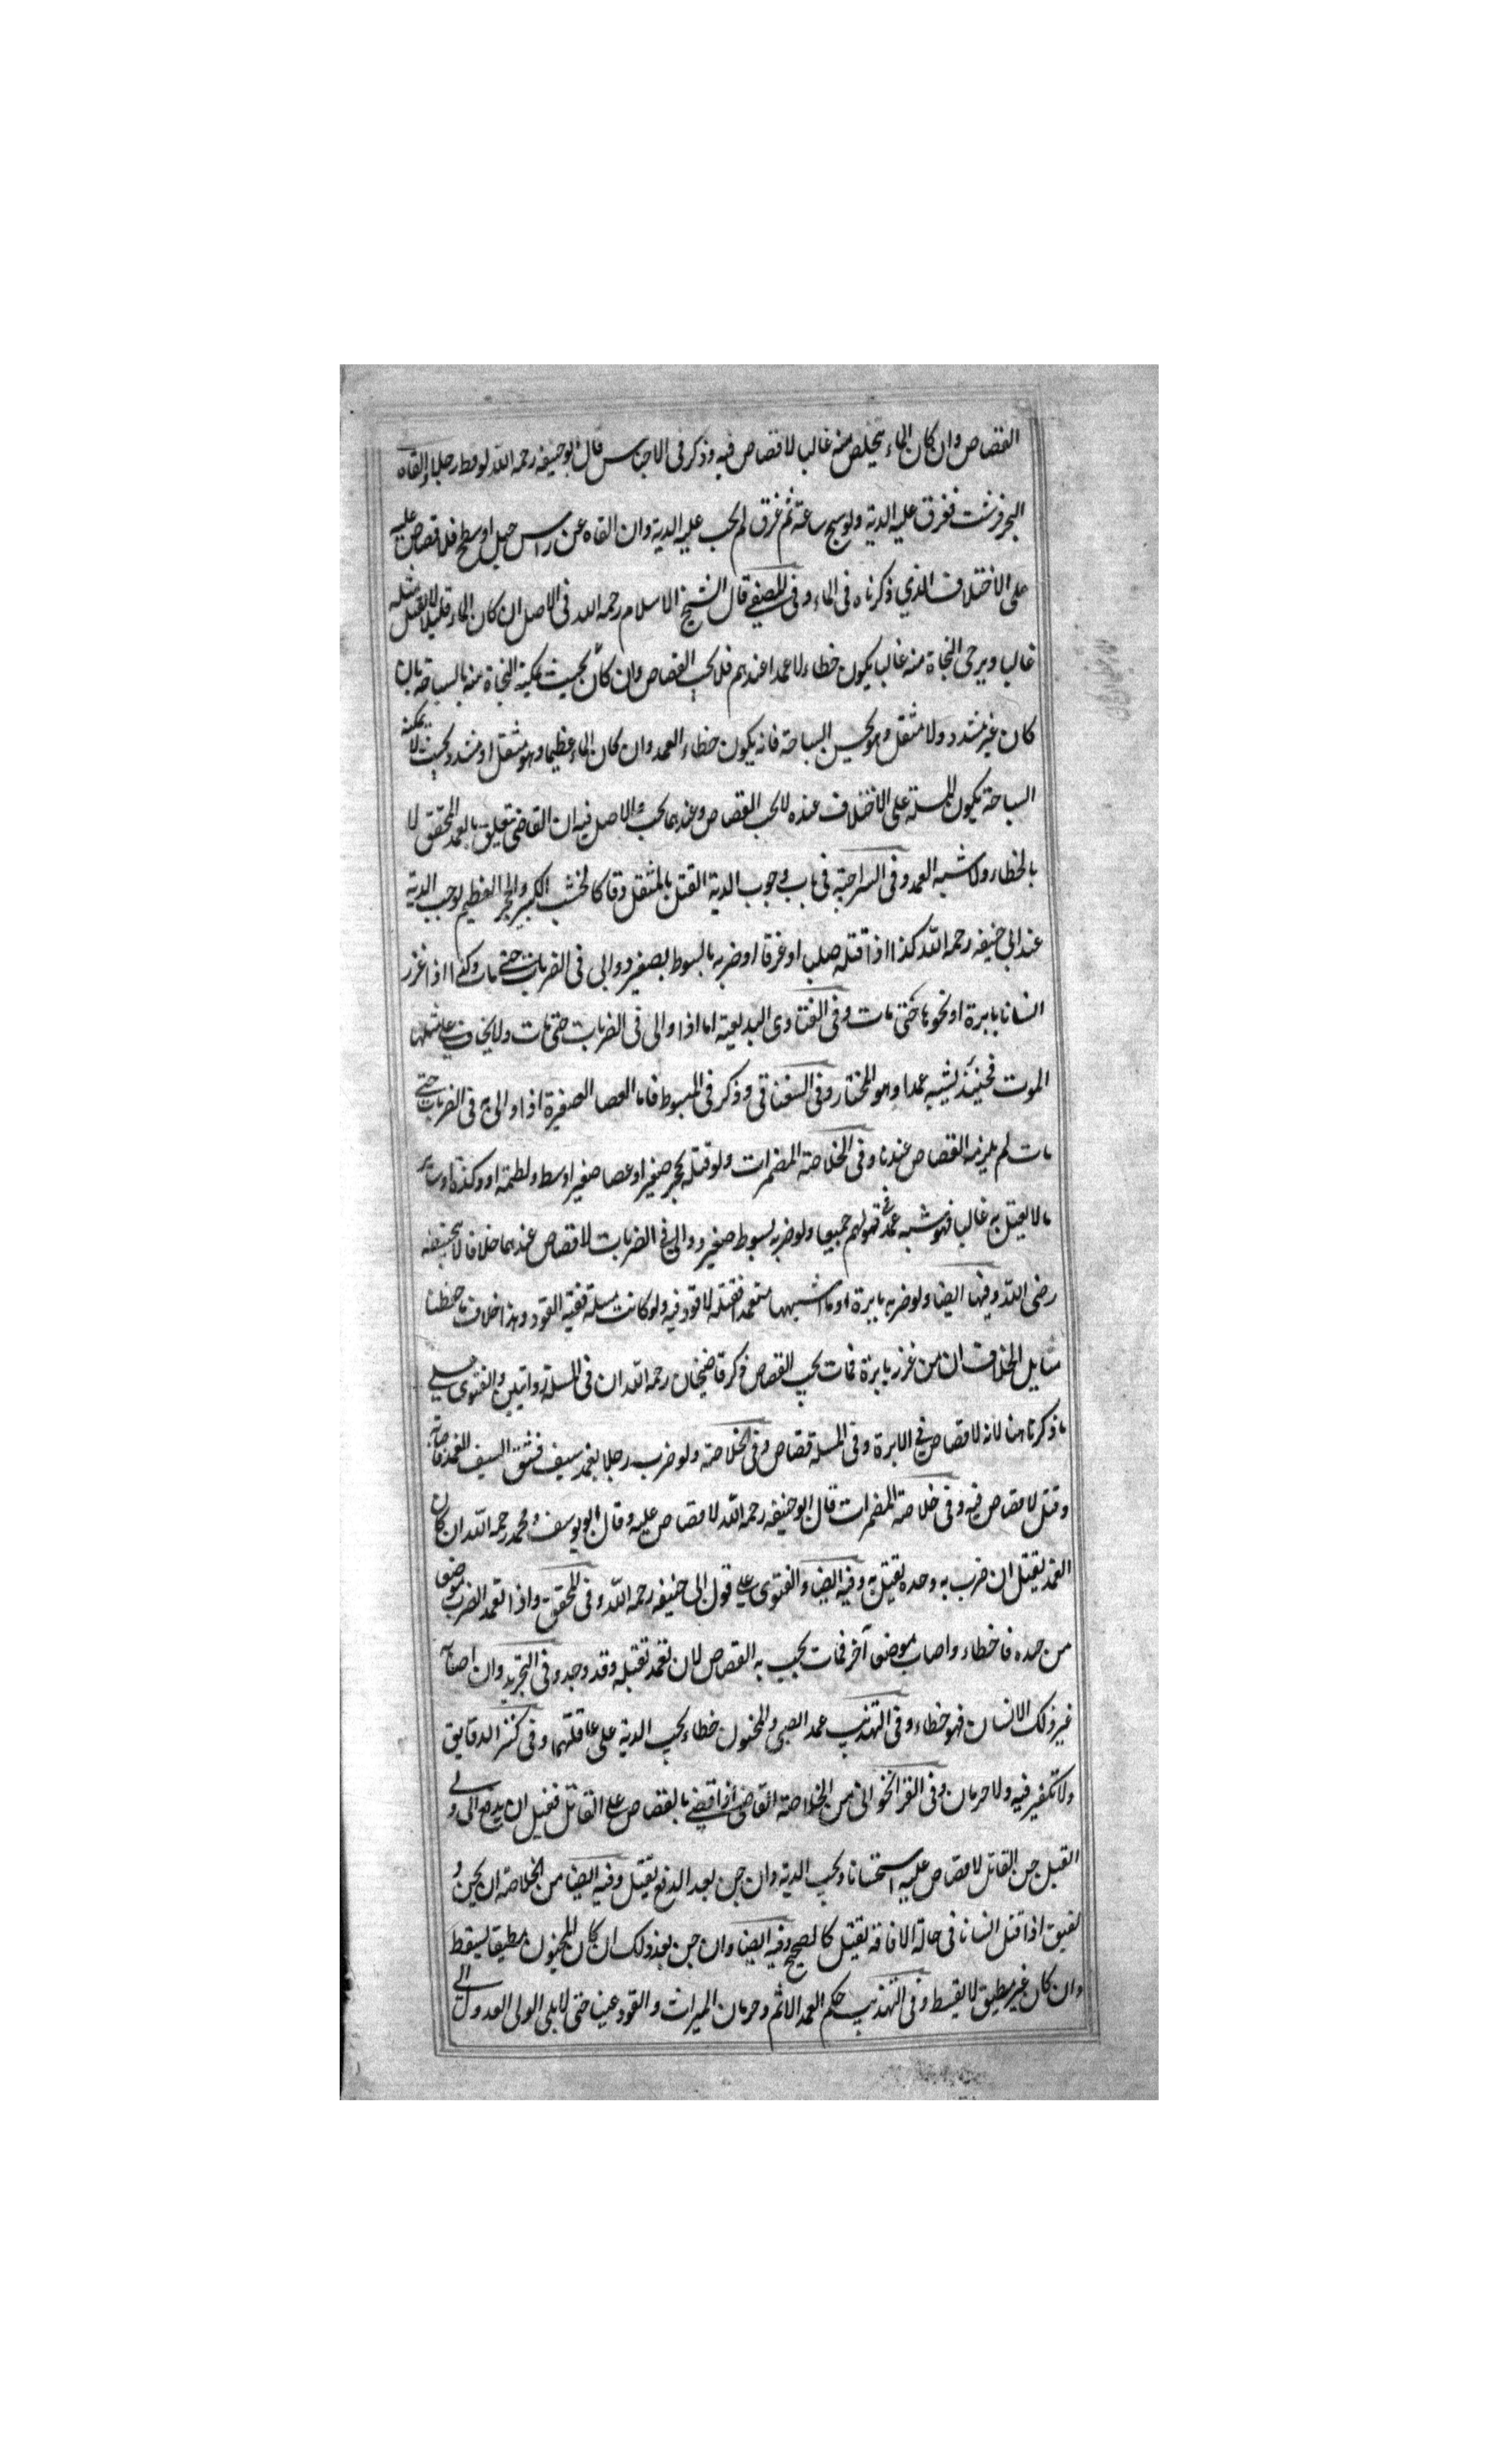 القصاص وان كان الماء يتخلص منه غالبا لا قصاص فيه وذكر فى الاجناس قال ابو حنيفه رحمه الله لو قمط رجلا والقاه
البحر فرسب فغرق عليه الدية ولو سبح ساعة ثم غرق لم يجب عليه الدية وان القاه عن راس جبل او سطح فلا قصاص عليه
على الاختلاف الذي ذكرناه فى الماء وفى المصفى قال الشيخ الاسلام رحمه الله فى الاصل ان كان الماء قليلا لا يقتل مثله
غالبا ويرجى النجاة منه غالبا يكون خطاء لا عمدا عندهم فلا يجب القصاص وان كان بحيث يمكنه النجاة منه بالسباحة بان
كان غير مشدد ولا مثقل وهو يحسن السباحة فانه يكون خطاء العمد وان كان الماء عظيما وهو مثقل او مشدد بحيث لا يمكنه
السباحة يكون المسئلة على الاختلاف عنده لا يجب القصاص وعندهما يجب والاصل فيه ان القاضى يتعلق بالعمد المحقق لا
بالخطاء ولا شبه العمد وفى السراجية فى باب وجوب الدية القتل بالمثقل دقا كالخشب الكبير والحجر العظيم يوجب الدية
عند ابى حنيفه رحمه الله كذا اذا قتله صلبا او غرقا او ضربه بالسوط بصغير ووالى فى الضربات حتى مات وكذا اذا غرز
انسانا بابرة او نحوها حتى مات وفى الفتاوى البديعية اما اذا والى فى الضربات حتى مات ولا يخاف على مثلها
الموت فحينئذ يشبه عمدا وهو المختار وفى السغناقى وذكر فى المبسوط فاما العصا الصغيرة اذا والى به فى الضربات حتى
مات لم يلزمه القصاص عندنا وفى الخلاصة المضمرات ولو قتله بحجر صغير او عصا صغير او سط ولطمة او وكزة او ساير
ما لا يقتل به غالبا فهو شبه عمد فى قولهم جميعا ولو ضربه بسوط صغير ووالى فى الضربات لا قصاص عندهما خلافا لابى حنيفه
رضى الله وفيها ايضا ولو ضربه بابرة او ما اشبهها متعمدا فقتله لا قود فيه ولو كانت مسلة ففيه القود وهذا خلاف ما حفظنا
مسايل الخلاف ان من غرز بابرة فمات يجب القصاص ذكر قاضيخان رحمه الله ان فى المسئلة روايتين والفتوى على
ما ذكرنا هنا لانه لا قصاص فى الابرة وفى المسلة قصاص وفى الخلاصة ولو ضرب رجلا بغمد سيف فشق السيف الغمد فاصابه
وقتل لا قصاص فيه وفى خلاصة المضمرات قال ابو حنيفه رحمه الله لا قصاص عليه وقال ابو يوسف ومحمد رحمه الله ان كان
الغمد يقتل ان ضرب به وحده يقتل به وفيه ايضا والفتوى على قول ابى حنيفه رحمه الله وفى المحقق واذا تعمد الضرب موضع
من جسده فاخطاء واصاب موضعا آخر فمات يجب به القصاص لان تعمد تقتله وقد وجد وفى التجريد وان اصاب
غير ذلك الانسان فهو خطاء وفى التهذيب عمد الصبى والمجنون خطاء يجب الدية على عاقلتهما وفى كنز الدقايق
ولا تكفير فيه ولا حرمان وفى الفرانخوانى من الخلاصة القاضى اذا قضى بالقصاص على القاتل فقبل ان يدفع الى ولى
القتيل جن القاتل لا قصاص عليه استحسانا ويجب الدية وان جن بعد الدفع يقتل وفيه ايضا من الخلاصة ان يجن و
يفيق اذا قتل انسانا فى حالة الافاقة يقتل كالصحيح وفيه ايضا وان جن بعد ذلك ان كان المجنون مطبقا يسقط
وان كان غير مطبق لا يسقط وفى التهذيب حكم العمد الاثم وحرمان الميراث والقود عينا حتى لا يلى الولى العدول الى